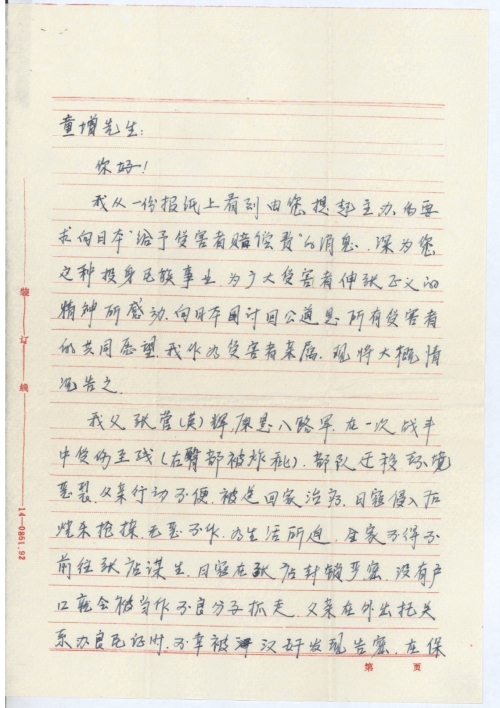 童增先生：
你好！
我从一份报纸上看到由您提起主办的要
求向日本“给予受害者赔偿费”的消息，深为您
这种投身民族事业，为广大受害者伸张正义的
精神所感动，向日本国讨回公道是所有受害者
的共同愿望，我作为受害者亲属，现将大概情
况告之。
我父张营（英）辉，原是八路军，在一次战斗
中受伤至残（右臀部被炸），部队迁移环境
恶裂，父亲行动不便，被送回家治疗，日寇侵入后
烧杀抢掠，无恶不作，为生活所迫，全家不得不
前往张店谋生，日寇在张店封锁严密，没有户
口就会被当作不良分子抓走，父亲在外出托关
系办良民证时，不幸被汉奸发现告密，在保
装订线
14—0861.92
第 页